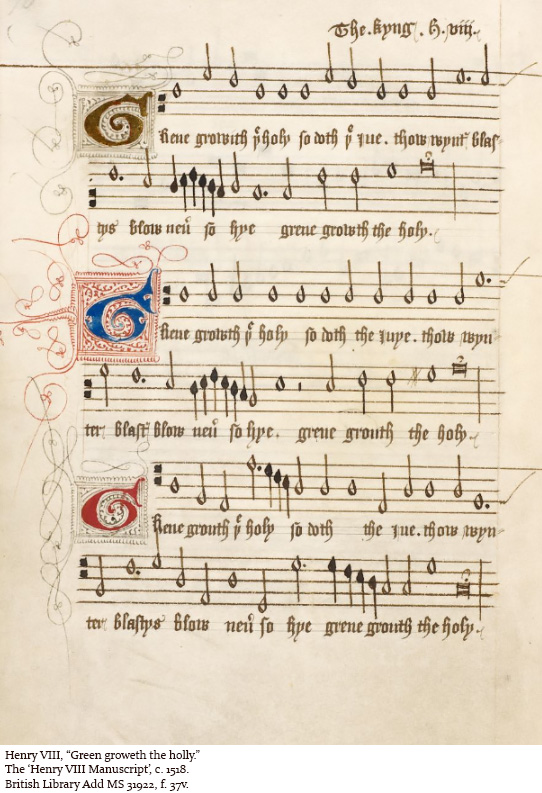 The . kyng . h . viij .
Grene growith yͤ holy so doth yͤ iue . thow wynt blas-
tys blow neuͬ so hye grene growth the holy .
Grene growth yͤ holy so doth the iuye . thow wyn
ter blast blow neuͬ so hye . grene grouth the holy .
Grene grouth yͤ holy so doth the iue . thow wyn-
ter blastys blow neuͬ so hye grene grouth the holy .
Henry VIII, “Green groweth the holly.”
The ‘Henry VIII Manuscript’, c. 1518.
British Library Add MS 31922, f. 37v.